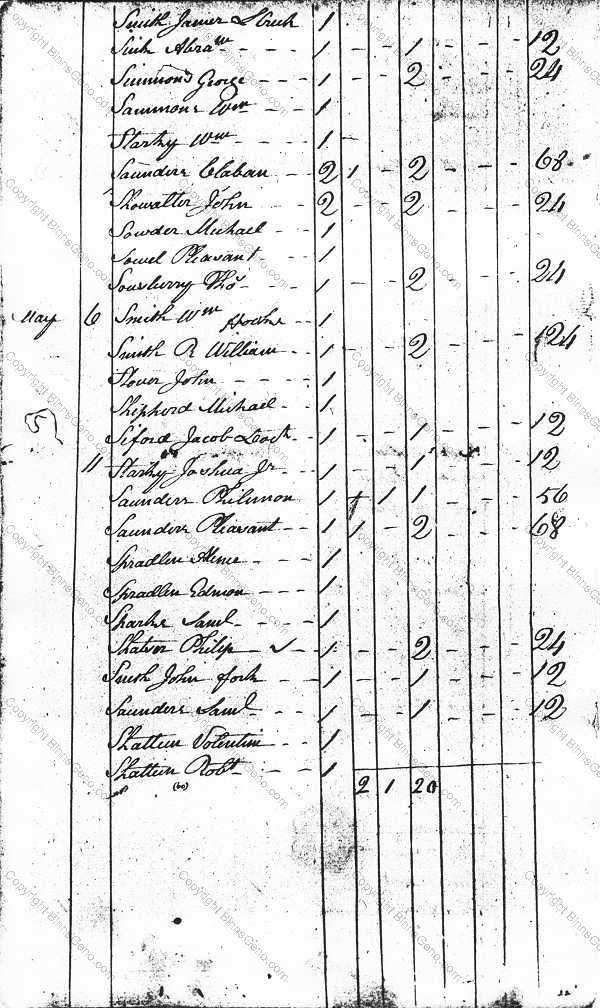 Smith James 1
Sink Abram - - 1 - - 1 - - - 12
Simmons George - - - 1 - - 2 - - - 24
Sammons Wm - - 1
Starky Wm - - - 1 -
Saunders Claban - - 2 1 - 2 - - - 68
Showalter John - - 2 - - 2 - - - 24
Sowder Michael - - 1
Sowel Pleasant - - 1
Sousberry Thos - - - 1 - - 2 - - - 24
May 6 Smith Wm - - 1
Smith R William - - 1 - - 2 - - - 24
Stover John - - - - 1
Shepherd Michael - - 1
5
Siford Jacob - - 1 - - 1 - - - 12
11 Starky Joshua Jr - - 1 - - 1 - - - 12
Saunders Philimon 1 1 1 - - - 56
Saunders Pleasant - - 1 1 - 2 - - - 68
Spradlen - - - 1
Spradlen Edmon - - - 1
Sharke Saml - - - 1
Philip - 1 - - 2 - - - 24
Smith John fork - - 1 - - 1 - - - 12
Saunders Saml - - 1 - - 1 - - - 12
Shatteen Volentine - - 1
Shatteen Robt - - - 1
2 1 20
(60)
Copyright BinnsGeno.com